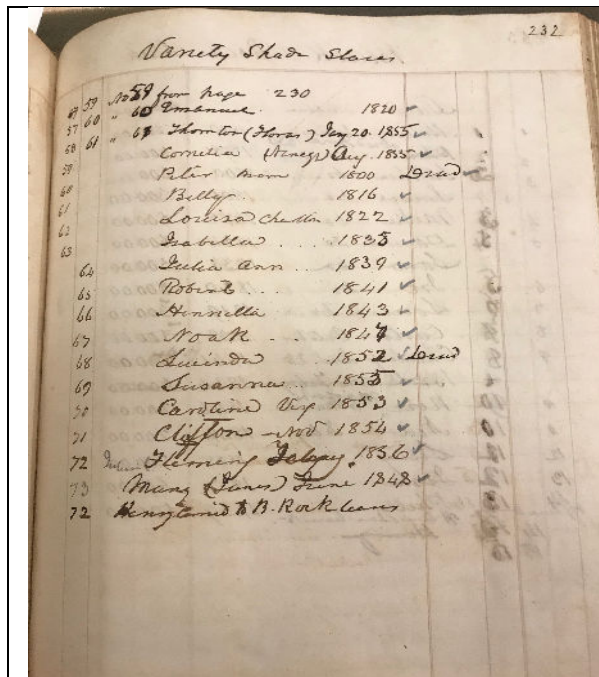 232
Variety Shade Slaves
59 No 59 from page 230
57 60 " 60 Emanuel 1820 ✓
58 61 " 61 Thornton (Floras) Jany 20. 1855
59 Cornelia (Nancys) Aug. 1855 ✓
60 Peter mom 1800 Dead ✓
61 Billy 1816 ✓
62 Louisa 1822 ✓
63 Isabella . . . 1835 ✓
64 Julia Ann . . 1839 ✓
65 Robert . . 1841 ✓
66 Henrietta 1843 ✓
67 Noah . . 1847 ✓
68 Lucinda . . 1852 ✓ Dead
69 Susanna . . 1855 ✓
70 Caroline 1853 ✓
71 Clifton - Nov 1854 ✓
72 Fleming Feby 1856 ✓
73 (Janes) June 1848 ✓
72 to B. Rock